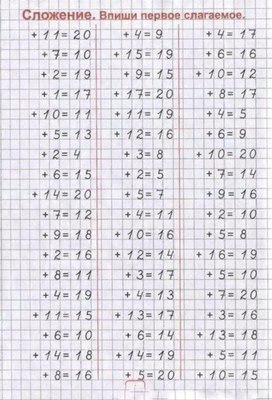 Сложение. Впиши первое слагаемое.
+ 11 = 20 + 4 = 9 + 4 = 17
+ 7 = 10 + 15 = 19 + 6 = 16
+ 2 = 19 + 9 = 15 + 10 = 12
+ 1 = 17 + 17 = 20 + 8 = 17
+ 10 = 11 + 11 = 19 + 4 = 5
+ 5 = 13 + 12 = 16 + 6 = 9
+ 2 = 4 + 3 = 8 + 10 = 20
+ 6 = 15 + 2 = 5 + 7 = 14
+ 14 = 20 + 5 = 7 + 9 = 16
+ 7 = 12 + 4 = 11 + 2 = 10
+ 9 = 18 + 10 = 16 + 5 = 8
+ 2 = 16 + 12 = 14 + 16 = 19
+ 8 = 11 + 3 = 17 + 5 = 10
+ 4 = 19 + 4 = 13 + 7 = 20
+ 11 = 15 + 13 = 17 + 3 = 16
+ 6 = 10 + 6 = 14 + 13 = 18
+ 14 = 18 + 14 = 19 + 5 = 11
+ 8 = 16 + 5 = 20 + 10 = 15